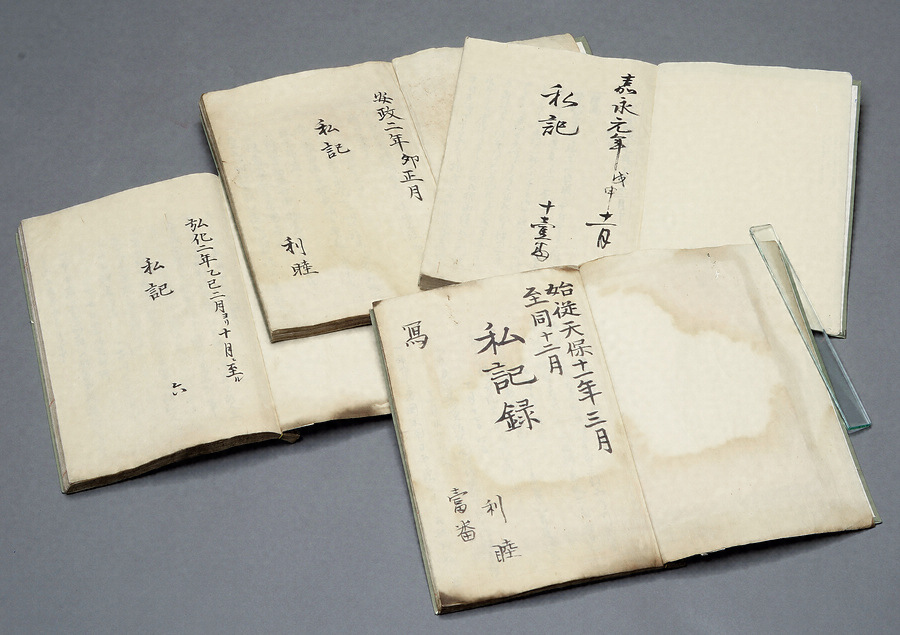 弘化二年乙巳二月ヨリ十月ニ至ル
私記
六
安政二年卯正月
私記
利睦
嘉永元年戊申十一月
私記
十壹番
始從天保十一年三月
至同十二月
私記録
利睦
壹番
寫